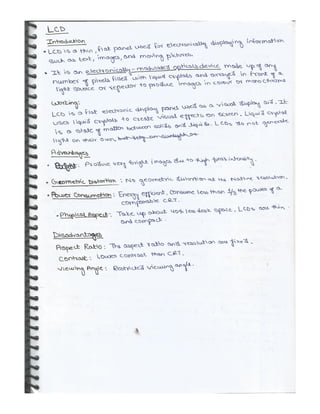 LCD
Introduction
• LCD is a thin, flat panel used for electronically displaying information
such as text, images, and moving pictures.
• It is an electronically-modulated optical device made up of any
number of pixels filled with liquid crystals and arrayed in front of a
light source or reflector to produce images in colour or monochrome
Working:
LCD is a flat electronic display panel used as a visual display aid. It
uses liquid crystals to create visual effects on screen. Liquid crystal
is a state of matter between solids and liquids. LCDs do not generate
light on their own, but
Advantages
• Bright: Produce very bright images due to high peak intensity.
• Geometric Distortion: No geometric distortion at the native resolution.
• Power Consumption: Energy efficient. Consume less than 1/3 the power of a
comparable CRT.
• Physical Aspect: Take up about 40% less desk space. LCDs are thin
and compact.
Disadvantages
Aspect Ratio: The aspect ratio and resolution are fixed.
Contrast: Lower contrast than CRT.
Viewing Angle: Restricted viewing angle.